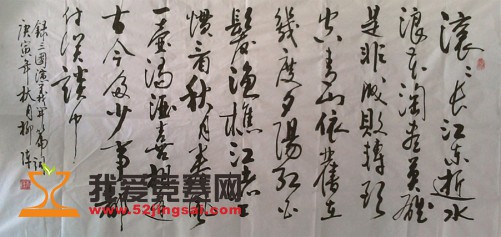 滚滚长江东逝水
浪花淘尽英雄
是非成败转头
空青山依旧在
几度夕阳红白
髮渔樵江渚上
惯看秋月春风
一壶浊酒喜相逢
古今多少事都
付笑谈中
錄三國演義开篇词
庚寅年秋月柳
我爱竞赛网
www.52jingsai.com